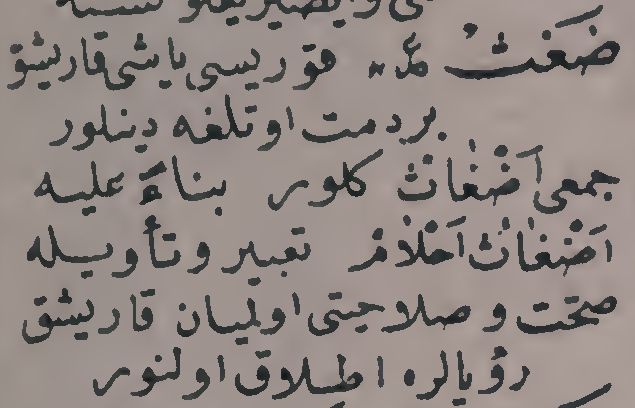 ضَغْثٌ مد قوريسى ياشى قاريشق
بر دمت اوتلغه دينلور
جمعى اَضْغَاثْ كلور بناءً عليه
اَضْغَاثُ اَحْلَامْ تعبير و تأويله
صحت و صلاحيتى اولميان قاريشق
رؤيالره اطلاق اولنور